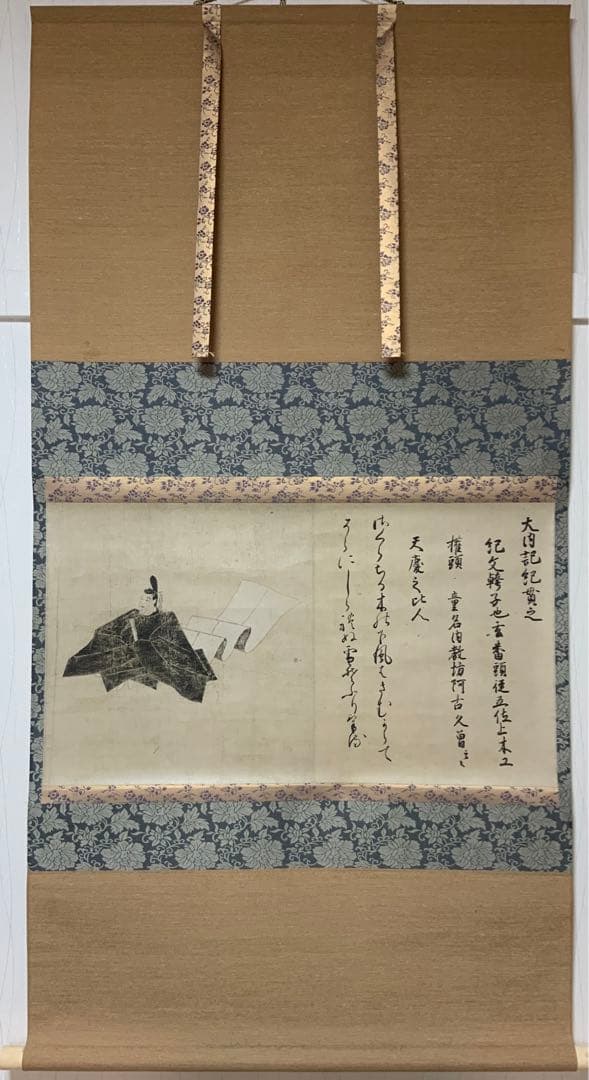 大内記紀貫之
紀文幹子也玄蕃頭従五位上木工
権頭 童名内教坊阿古久曽云々
天慶之比人
さくらちる木の下風はさむからて
そらにしられぬ雪そふりける